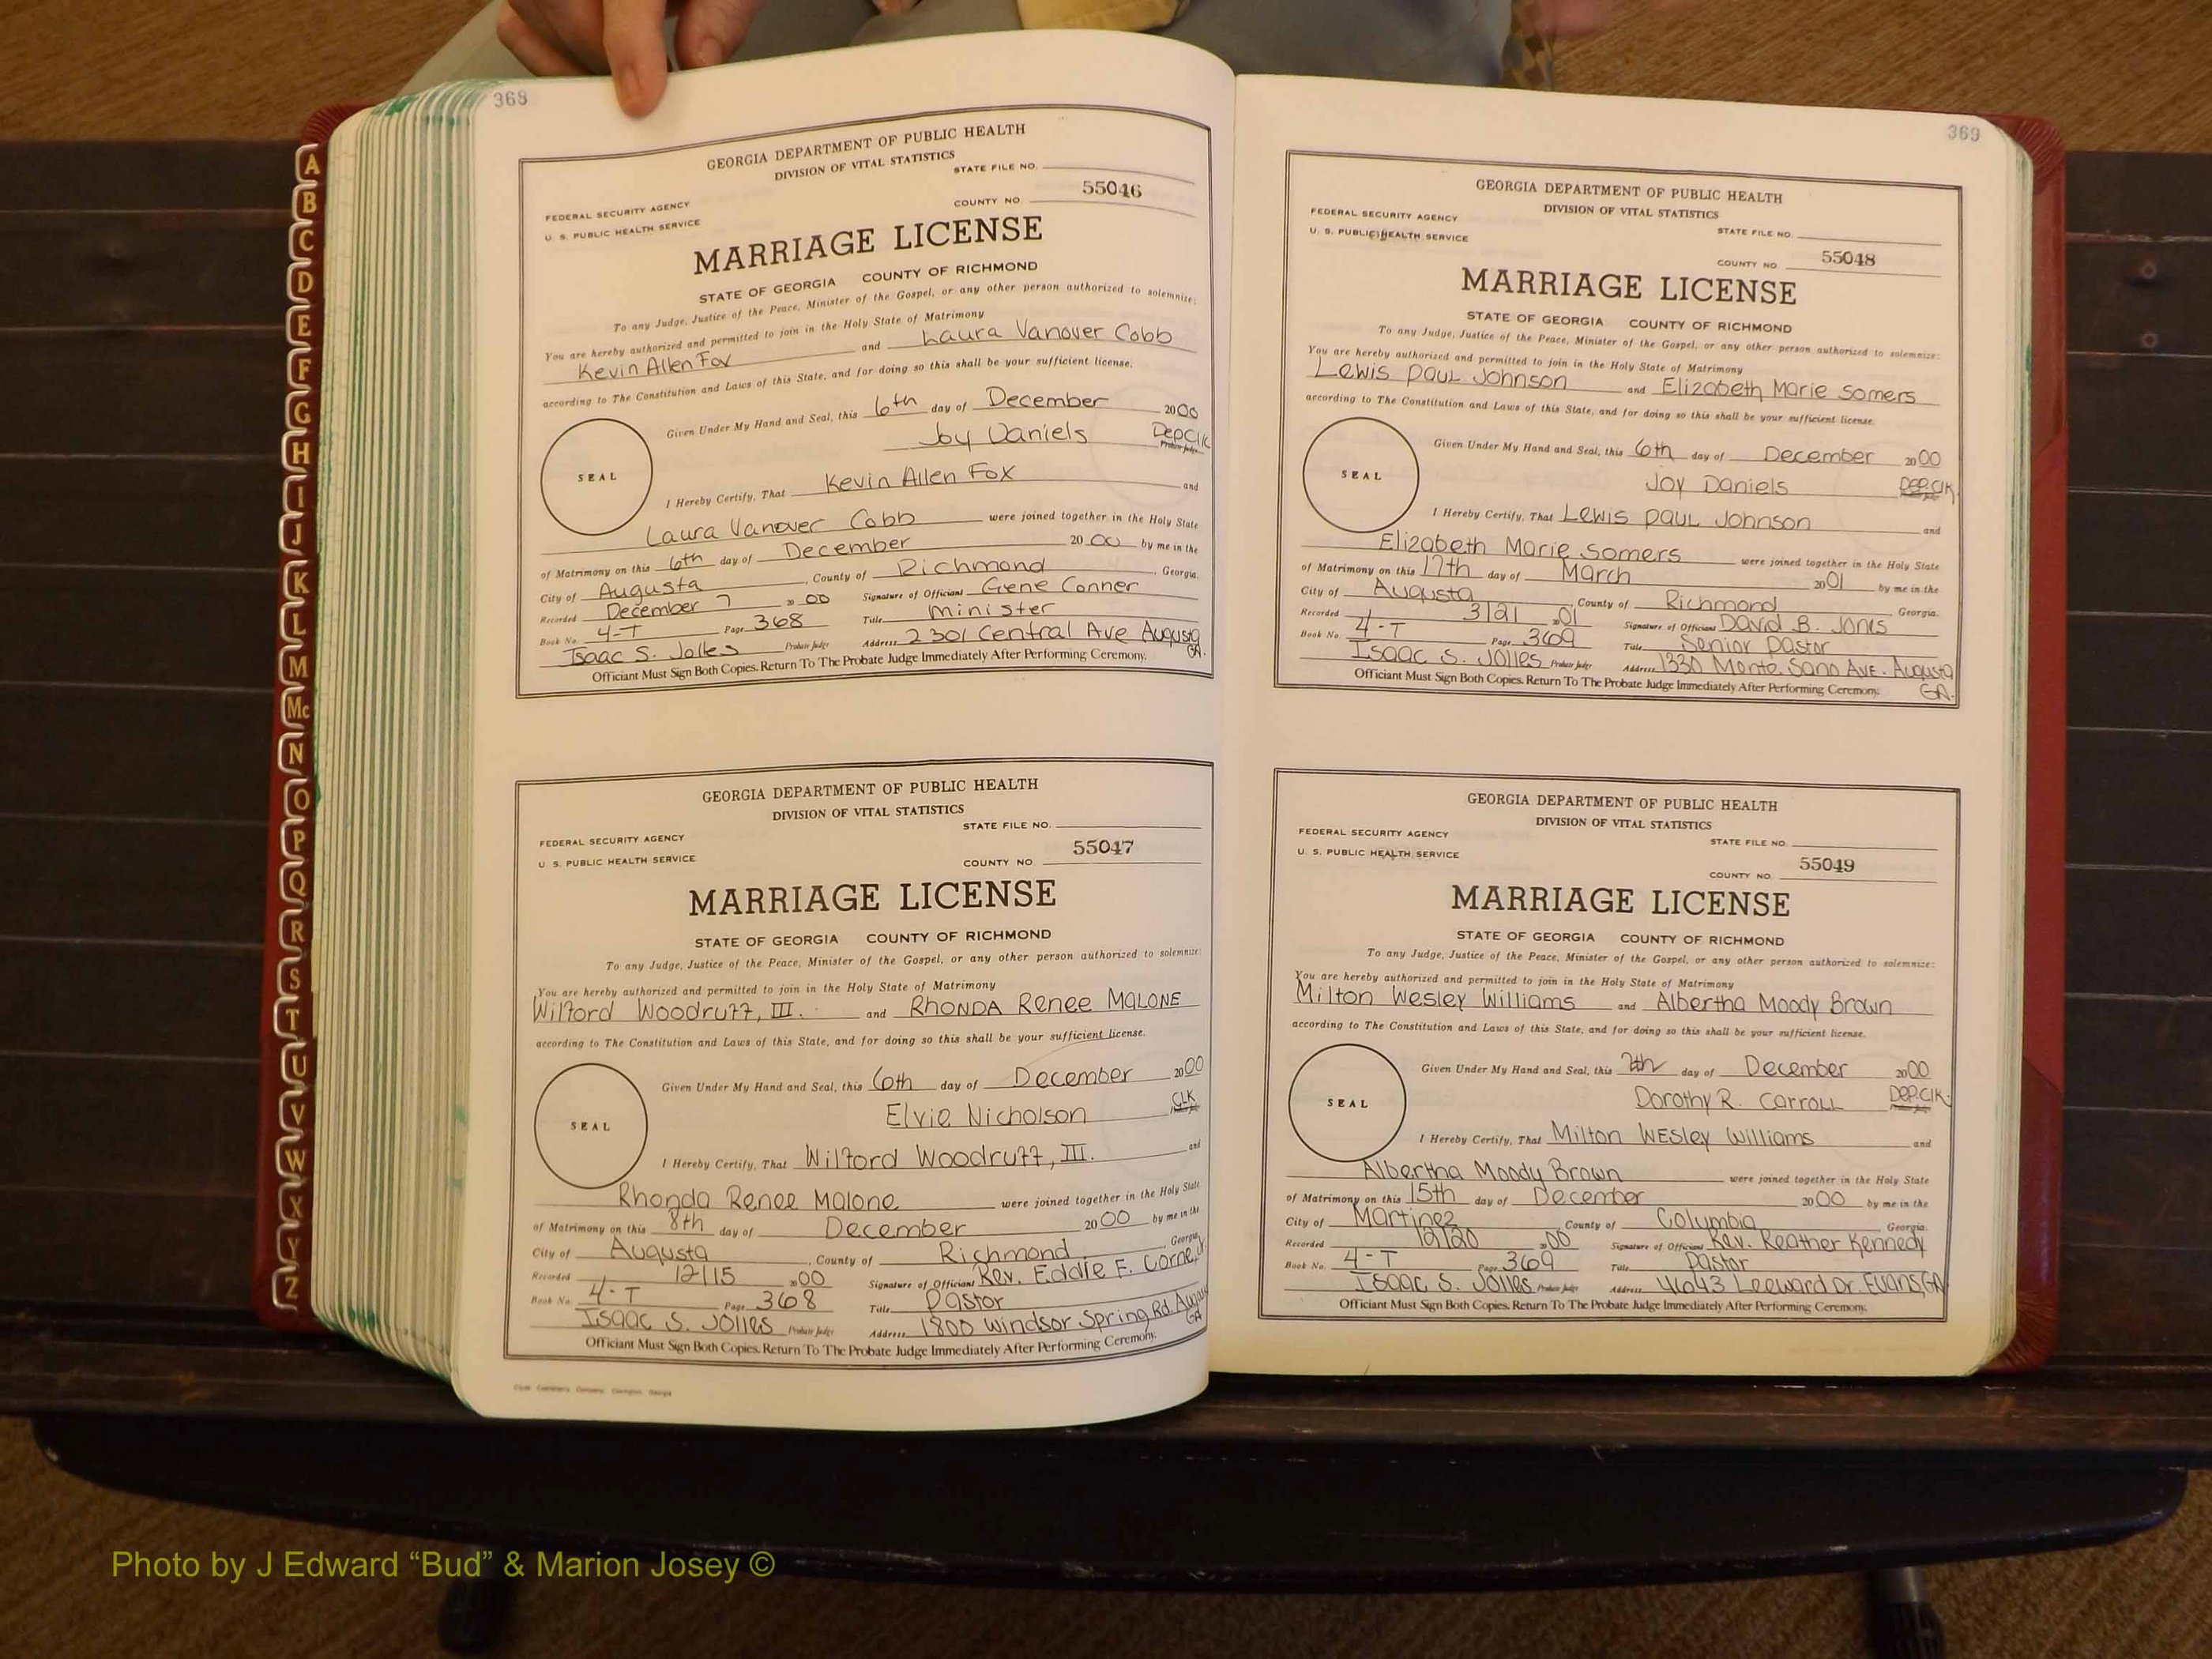 368
GEORGIA DEPARTMENT OF PUBLIC HEALTH
DIVISION OF VITAL STATISTICS
STATE FILE NO.
FEDERAL SECURITY AGENCY
U. S. PUBLIC HEALTH SERVICE
COUNTY NO. 55046
MARRIAGE LICENSE
STATE OF GEORGIA COUNTY OF RICHMOND
To any Judge, Justice of the Peace, Minister of the Gospel, or any other person authorized to solemnize:
You are hereby authorized and permitted to join in the Holy State of Matrimony
Kevin Allen Fox and Laura Vanover Cobb
according to The Constitution and Laws of this State, and for doing so this shall be your sufficient license.
Given Under My Hand and Seal, this 6th day of December 2000
Joy Daniels Dep Clk
Probate Judge
SEAL
I Hereby Certify, That Kevin Allen Fox and
Laura Vanover Cobb were joined together in the Holy State
of Matrimony on this 6th day of December 2000 by me in the
City of Augusta, County of Richmond, Georgia.
Recorded December 7 2000 Signature of Officiant Gene Conner
Book No. 4-T Page 368 Title Minister
Isaac S. Jolles Probate Judge Address 2301 Central Ave Augusta GA.
Officiant Must Sign Both Copies. Return To The Probate Judge Immediately After Performing Ceremony.
GEORGIA DEPARTMENT OF PUBLIC HEALTH
DIVISION OF VITAL STATISTICS
STATE FILE NO.
FEDERAL SECURITY AGENCY
U. S. PUBLIC HEALTH SERVICE
COUNTY NO. 55047
MARRIAGE LICENSE
STATE OF GEORGIA COUNTY OF RICHMOND
To any Judge, Justice of the Peace, Minister of the Gospel, or any other person authorized to solemnize:
You are hereby authorized and permitted to join in the Holy State of Matrimony
Wilford Woodruff, III. and RHONDA Renee MALONE
according to The Constitution and Laws of this State, and for doing so this shall be your sufficient license.
Given Under My Hand and Seal, this 6th day of December 2000
Elvie Nicholson CLK
SEAL
I Hereby Certify, That Wilford Woodruff, III. and
Rhonda Renee Malone were joined together in the Holy State
of Matrimony on this 8th day of December 2000 by me in the
City of Augusta, County of Richmond, Georgia
Recorded 12/15 2000 Signature of Officiant Rev. Eddie F.
Book No. 4-T Page 368 Title Pastor
Isaac S. Jolles Probate Judge Address 1800 Windsor Spring Rd. GA
Officiant Must Sign Both Copies. Return To The Probate Judge Immediately After Performing Ceremony.
369
GEORGIA DEPARTMENT OF PUBLIC HEALTH
DIVISION OF VITAL STATISTICS
FEDERAL SECURITY AGENCY
U. S. PUBLIC HEALTH SERVICE
STATE FILE NO.
COUNTY NO. 55048
MARRIAGE LICENSE
STATE OF GEORGIA COUNTY OF RICHMOND
To any Judge, Justice of the Peace, Minister of the Gospel, or any other person authorized to solemnize:
You are hereby authorized and permitted to join in the Holy State of Matrimony
Lewis Paul Johnson and Elizabeth Marie Somers
according to The Constitution and Laws of this State, and for doing so this shall be your sufficient license.
Given Under My Hand and Seal, this 6th day of December 2000
Joy Daniels Dep. Clk
SEAL
I Hereby Certify, That Lewis Paul Johnson and
Elizabeth Marie Somers were joined together in the Holy State
of Matrimony on this 17th day of March 2001 by me in the
City of Augusta, County of Richmond Georgia.
Recorded 3/21 01 Signature of Officiant David B. Jones
Book No. 4-T Page 369 Title Senior Pastor
Isaac S. Jolles Probate Judge Address 1330 Monte Sano Ave. Augusta GA.
Officiant Must Sign Both Copies. Return To The Probate Judge Immediately After Performing Ceremony.
GEORGIA DEPARTMENT OF PUBLIC HEALTH
DIVISION OF VITAL STATISTICS
FEDERAL SECURITY AGENCY
U. S. PUBLIC HEALTH SERVICE
STATE FILE NO.
COUNTY NO. 55049
MARRIAGE LICENSE
STATE OF GEORGIA COUNTY OF RICHMOND
To any Judge, Justice of the Peace, Minister of the Gospel, or any other person authorized to solemnize:
You are hereby authorized and permitted to join in the Holy State of Matrimony
Milton Wesley Williams and Albertha Moody Brown
according to The Constitution and Laws of this State, and for doing so this shall be your sufficient license.
Given Under My Hand and Seal, this 7th day of December 2000
Dorothy R. Carroll Dep. Clk.
SEAL
I Hereby Certify, That Milton Wesley Williams and
Albertha Moody Brown were joined together in the Holy State
of Matrimony on this 15th day of December 2000 by me in the
City of Martinez County of Columbia Georgia.
Recorded 12/20 00 Signature of Officiant Rev. Reather Kennedy
Book No. 4-T Page 369 Title Pastor
Isaac S. Jolles Probate Judge Address 4643 Leeward Dr. Evans, GA
Officiant Must Sign Both Copies. Return To The Probate Judge Immediately After Performing Ceremony.
A
B
C
D
E
F
G
H
I
J
K
L
M
Mc
N
O
P
Q
R
S
T
U
V
W
X
Y
Z
Photo by J Edward “Bud” & Marion Josey ©